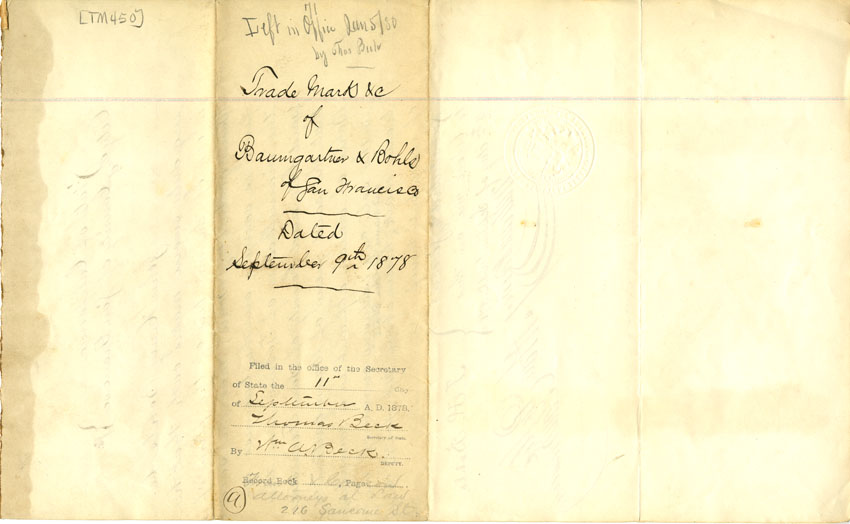 [TM450]
Left in Office Jan 5/80
by Thos Beck
Trade Mark &c
of
Baumgartner & Bohls
of San Francisco
Dated
September 9th 1878
Filed in the office of the Secretary
of State the 11th day
of September A. D. 1878.
Thomas Beck
Secretary of State
By Wm A. Beck.
DEPUTY.
Record Book Page
a
attorneys at Law
216 Sansome St